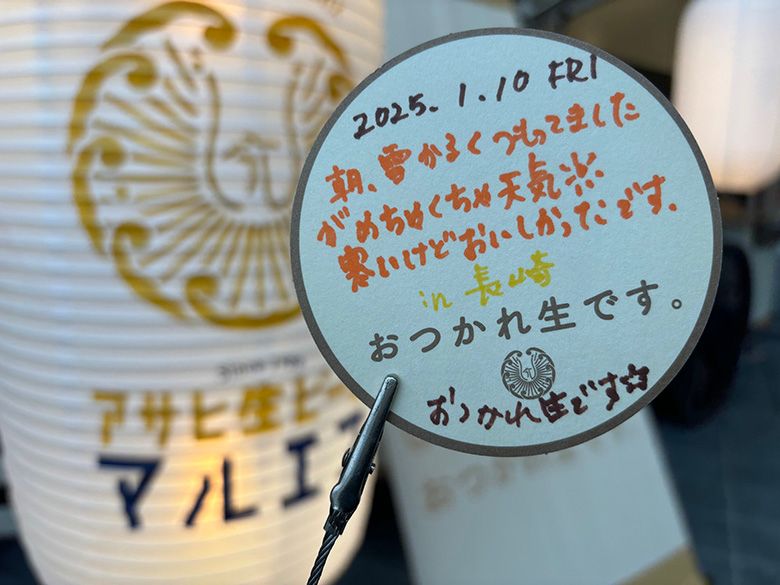 2025. 1. 10 FRI
朝、雪かるくつもってました
がめちゃくちゃ天気☼
寒いけどおいしかったです。
in 長崎
おつかれ生です。
おつかれ生です☆
アサヒ生ビ
マルエフ